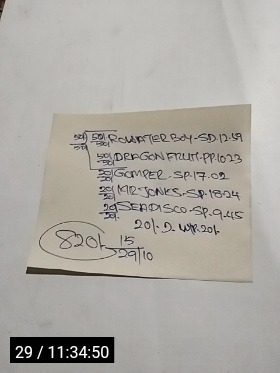 50/ 50/ ROWATER BOY-SD.12.59
50/ 50/
50/ DRAGON FRUIT-PP.10.23
50/
20/ GOMPER-SP.17.02
20/
20/ MR JONES-SP.18.24
20/
20/ SEADISCO-SP.9.45
20/
20/. D. WIR 20/.
820/- 15
29/10
29 / 11:34:50